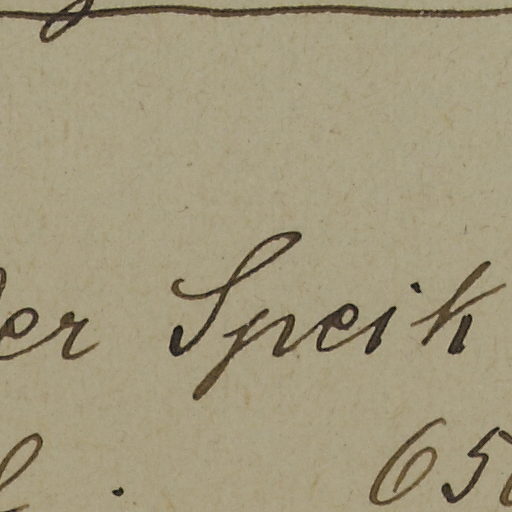 er Speik
65